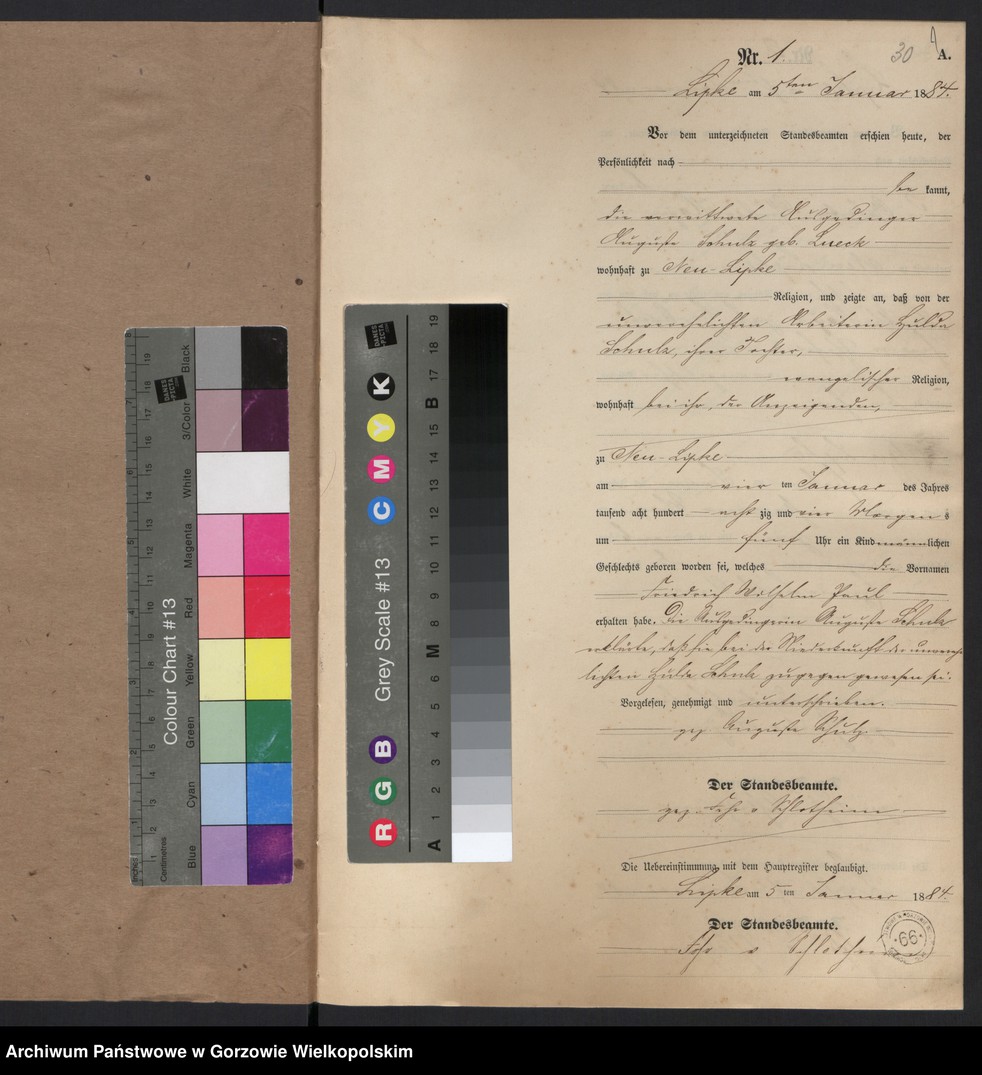 Nr. 1.
30
A.
Lipke am 5ten Januar 1884.
Vor dem unterzeichneten Standesbeamten erschien heute, der
Persönlichkeit nach
be kannt,
die verwittwete Ausgedinger
Auguste Schulz geb. Lueck
wohnhaft zu Neu-Lipke
Religion, und zeigte an, daß von der
unverehelichten Arbeiterin Hulda
Schulz, ihrer Tochter,
evangelischer Religion,
wohnhaft bei ihr, der Anzeigenden,
zu Neu-Lipke
am vier ten Januar des Jahres
tausend acht hundert acht zig und vier Morgens
um fünf Uhr ein Kind männlichen
Geschlechts geboren worden sei, welches die Vornamen
Friedrich Wilhelm Paul
erhalten habe. Die Ausgedingerin Auguste Schulz
erklärte, daß sie bei der Niederkunft der unverehe-
lichten Hulda Schulz zugegen gewesen sei.
Vorgelesen, genehmigt und unterschrieben.
gez. Auguste Schulz.
Der Standesbeamte.
gez. Frhr v Schlotheim
Die Uebereinstimmung mit dem Hauptregister beglaubigt.
Lipke am 5 ten Januar 1884.
Der Standesbeamte.
Frhr v Schlotheim
66
Colour Chart #13
Blue Cyan Green Yellow Red Magenta White 3/Color Black
Inches
Centimetres
DANES PICTA
Grey Scale #13
R G B C M Y K
A 1 2 3 4 5 6 M 8 9 10 11 12 13 14 15 B 17 18 19
DANES PICTA
Archiwum Państwowe w Gorzowie Wielkopolskim